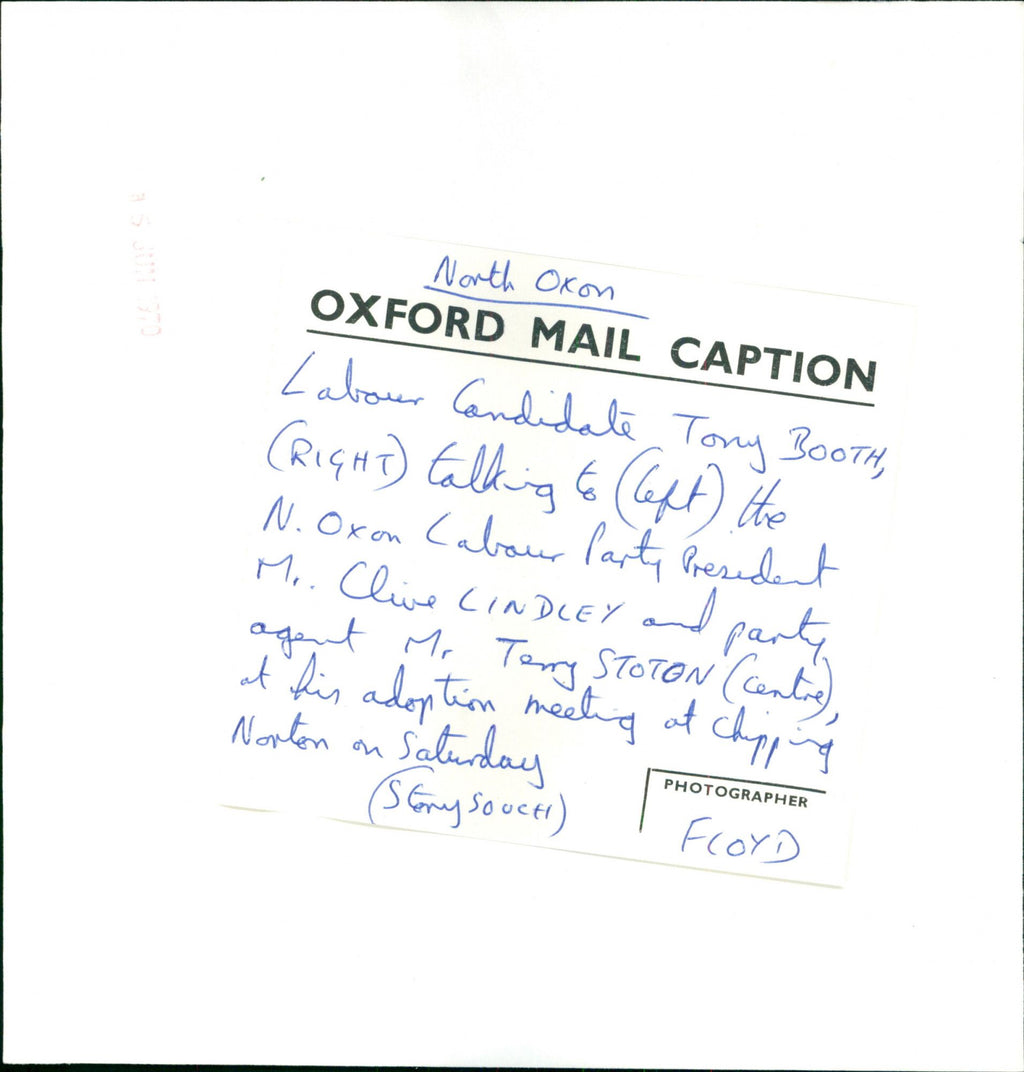 North Oxon
OXFORD MAIL CAPTION
Labour Candidate Tony BOOTH,
(RIGHT) talking to (left) the
N. Oxon Labour Party President
Mr. Clive LINDLEY and party
agent Mr Terry STOTON (centre),
at his adoption meeting at Chipping
Norton on Saturday
(Story SOUCH)
PHOTOGRAPHER
FLOYD